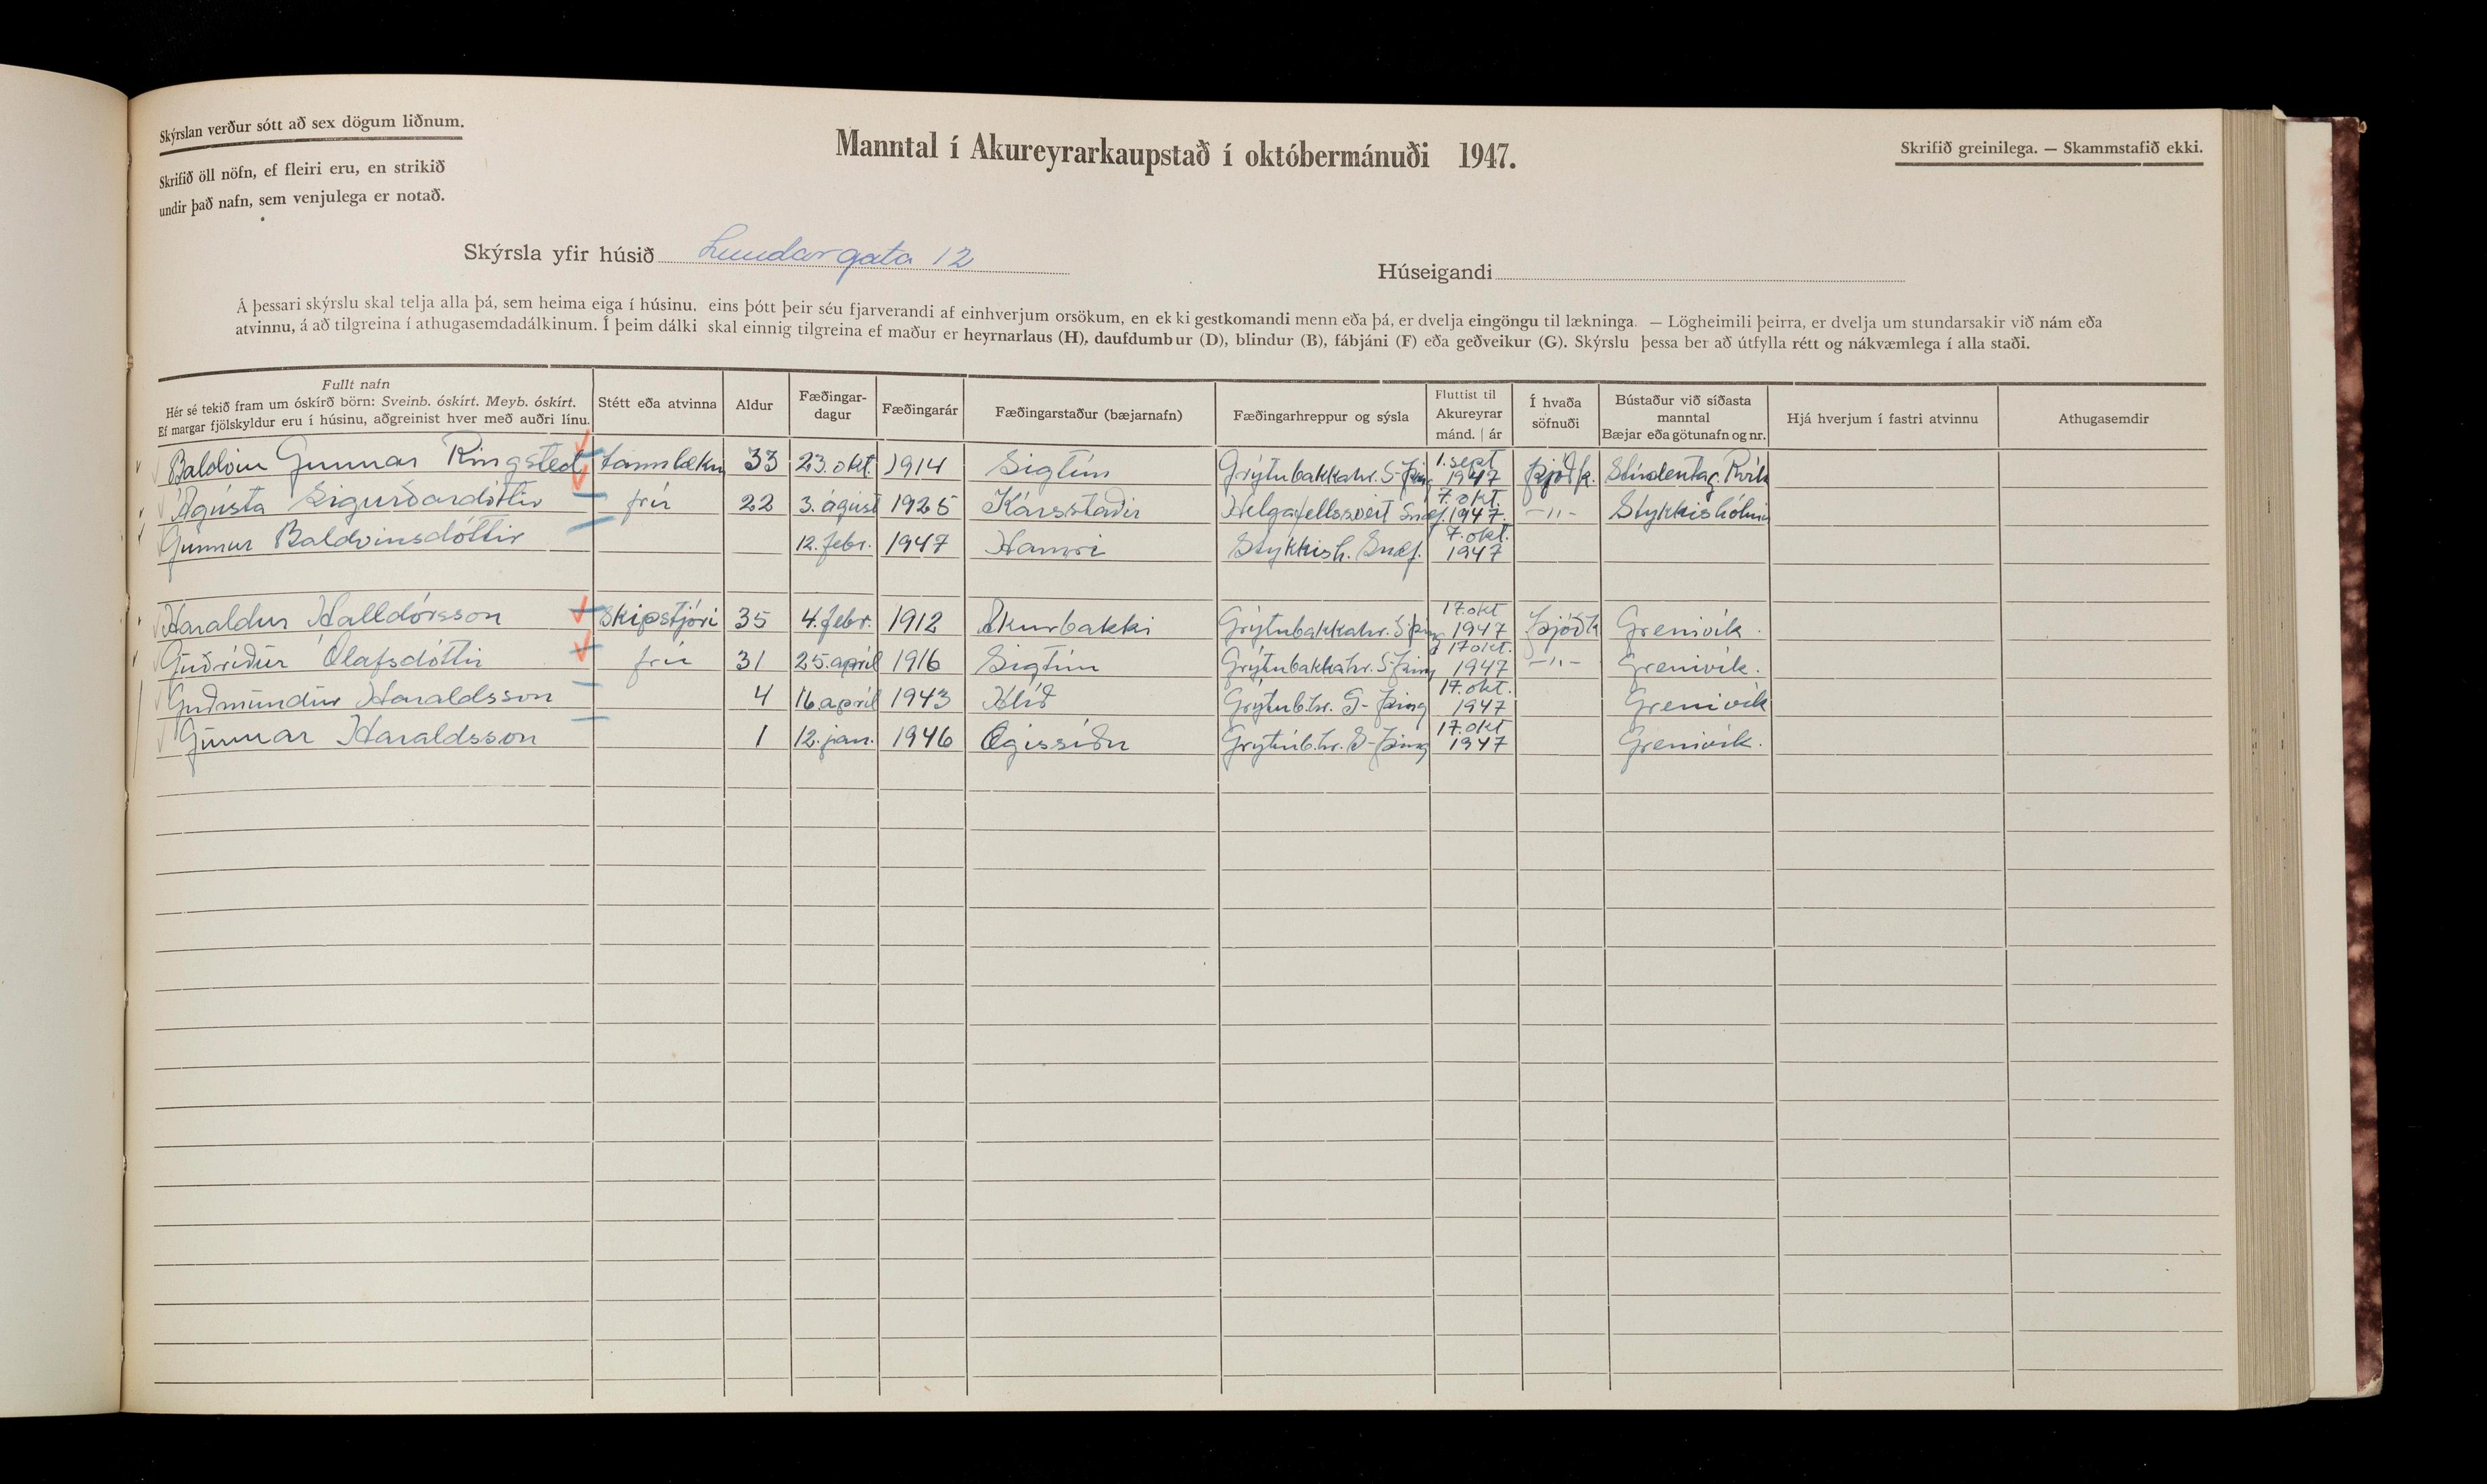 Skýrslan verður sótt að sex dögum liðnum.
Skrifið öll nöfn, ef fleiri eru, en strikið
undir það nafn, sem venjulega er notað.
Manntal í Akureyrarkaupstað í októbermánuði 1947.
Skrifið greinilega. — Skammstafið ekki.
Skýrsla yfir húsið Lundargata 12
Húseigandi
Á þessari skýrslu skal telja alla þá, sem heima eiga í húsinu, eins þótt þeir séu fjarverandi af einhverjum orsökum, en ekki gestkomandi menn eða þá, er dvelja eingöngu til lækninga. — Lögheimili þeirra, er dvelja um stundarsakir við nám eða
atvinnu, á að tilgreina í athugasemdadálkinum. Í þeim dálki skal einnig tilgreina ef maður er heyrnarlaus (H), daufdumbur (D), blindur (B), fábjáni (F) eða geðveikur (G). Skýrslu þessa ber að útfylla rétt og nákvæmlega í alla staði.
Fullt nafn
Hér sé tekið fram um óskírð börn: Sveinb. óskírt. Meyb. óskírt.
Ef margar fjölskyldur eru í húsinu, aðgreinist hver með auðri línu.
Stétt eða atvinna
Aldur
Fæðingar-
dagur
Fæðingarár
Fæðingarstaður (bæjarnafn)
Fæðingarhreppur og sýsla
Fluttist til
Akureyrar
mánd. | ár
Í hvaða
söfnuði
Bústaður við síðasta
manntal
Bæjar eða götunafn og nr.
Hjá hverjum í fastri atvinnu
Athugasemdir
Baldvin Gunnar Ringsted tannlækn 33 23. okt. 1914 Sigtún Grýtubakkahr. S-Þing 1. sept 1947 Þjóðk. Stúdentag. Rvík
Ágústa Sigurðardóttir frú 22 3. ágúst 1925 Kársstaðir Helgafellssveit Snæf. 7. okt. 1947. -"- Stykkishólmi
Gunnur Baldvinsdóttir 12. febr. 1947 Hamri Stykkish. Snæf. 7. okt. 1947
Haraldur Halldórsson Skipstjóri 35 4. febr. 1912 Skurbakki Grýtubakkahr. S-Þing 17. okt 1947 Þjóðk Grenivík
Guðríður Ólafsdóttir frú 31 25. apríl 1916 Sigtún Grýtubakkahr. S-Þing 17 okt. 1947 -"- Grenivík.
Guðmundur Haraldsson 4 16. apríl 1943 Hlíð Grýtub.hr. S-Þing 17. okt. 1947 Grenivík
Gunnar Haraldsson 1 12. jan. 1946 Ægissíðu Grýtub.hr. S-Þing 17. okt 1947 Grenivík.